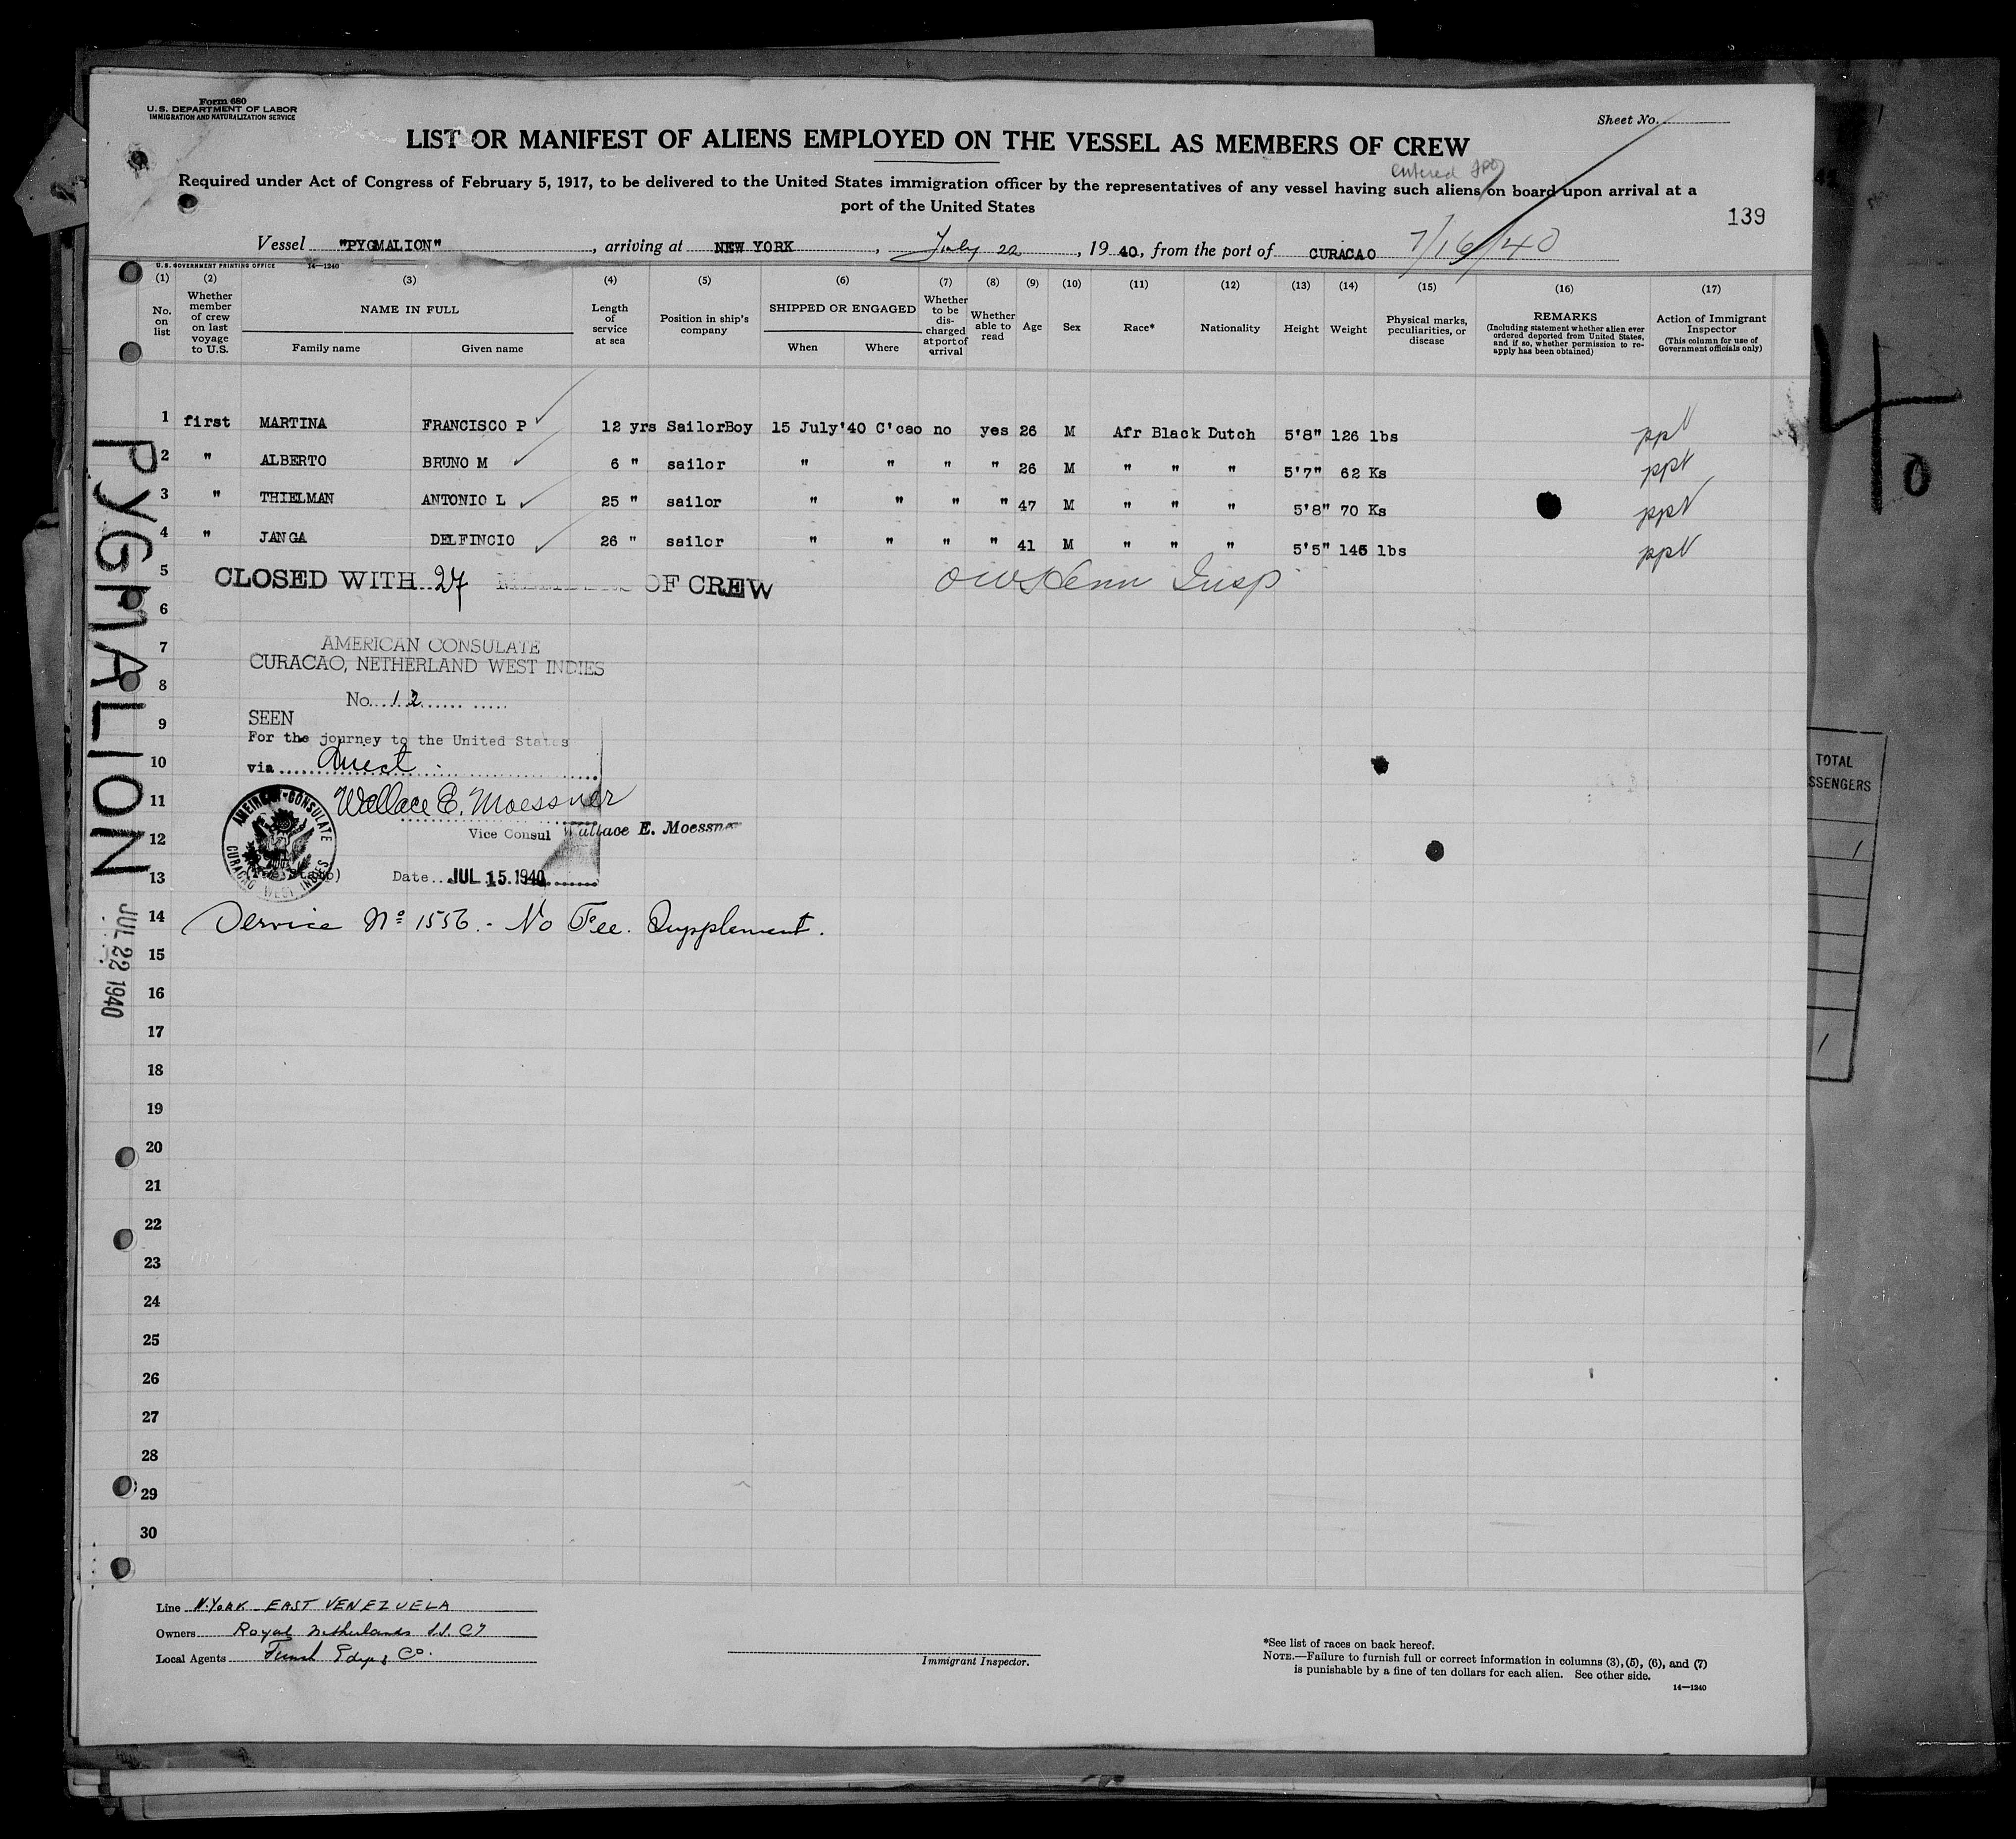 Form 680
U. S. DEPARTMENT OF LABOR
IMMIGRATION AND NATURALIZATION SERVICE
Sheet No.
LIST OR MANIFEST OF ALIENS EMPLOYED ON THE VESSEL AS MEMBERS OF CREW
entered
Required under Act of Congress of February 5, 1917, to be delivered to the United States immigration officer by the representatives of any vessel having such aliens on board upon arrival at a
port of the United States
139
Vessel "PYGMALION", arriving at NEW YORK, July 22, 1940, from the port of CURACAO 7/16/40
U. S. GOVERNMENT PRINTING OFFICE 14—1240
(1) (2) (3) (4) (5) (6) (7) (8) (9) (10) (11) (12) (13) (14) (15) (16) (17)
No. on list
Whether member of crew on last voyage to U.S.
NAME IN FULL
Family name
Given name
Length of service at sea
Position in ship's company
SHIPPED OR ENGAGED
When
Where
Whether to be discharged at port of arrival
Whether able to read
Age
Sex
Race*
Nationality
Height
Weight
Physical marks, peculiarities, or disease
REMARKS
(Including statement whether alien ever ordered deported from United States, and if so, whether permission to re-apply has been obtained)
Action of Immigrant Inspector
(This column for use of Government officials only)
1 first MARTINA FRANCISCO P 12 yrs SailorBoy 15 July'40 C'cao no yes 26 M Afr Black Dutch 5'8" 126 lbs ppt
2 " ALBERTO BRUNO M 6 " sailor " " " " 26 M " " " 5'7" 62 Ks ppt
3 " THIELMAN ANTONIO L 25 " sailor " " " " 47 M " " " 5'8" 70 Ks ppt
4 " JANGA DELFINCIO 26 " sailor " " " " 41 M " " " 5'5" 145 lbs ppt
5 CLOSED WITH 27 MEMBERS OF CREW Insp
6
7 AMERICAN CONSULATE
CURACAO, NETHERLAND WEST INDIES
8 No. 12
9 SEEN
For the journey to the United States
10 via direct
11 Wallace E. Moessner
12 Vice Consul Wallace E. Moessner
AMERICAN CONSULATE CURACAO WEST INDIES
13 Date JUL 15 1940
14 Service No 1556. - No Fee. Supplement.
15
16
17
18
19
20
21
22
23
24
25
26
27
28
29
30
PYGMALION
JUL 22 1940
40
TOTAL
SSENGERS
1
1
Line N.YORK EAST VENEZUELA
Owners Royal Netherlands S.S. Cy
Local Agents Funch Edye & Co.
Immigrant Inspector.
*See list of races on back hereof.
NOTE.—Failure to furnish full or correct information in columns (3), (5), (6), and (7)
is punishable by a fine of ten dollars for each alien. See other side.
14—1240